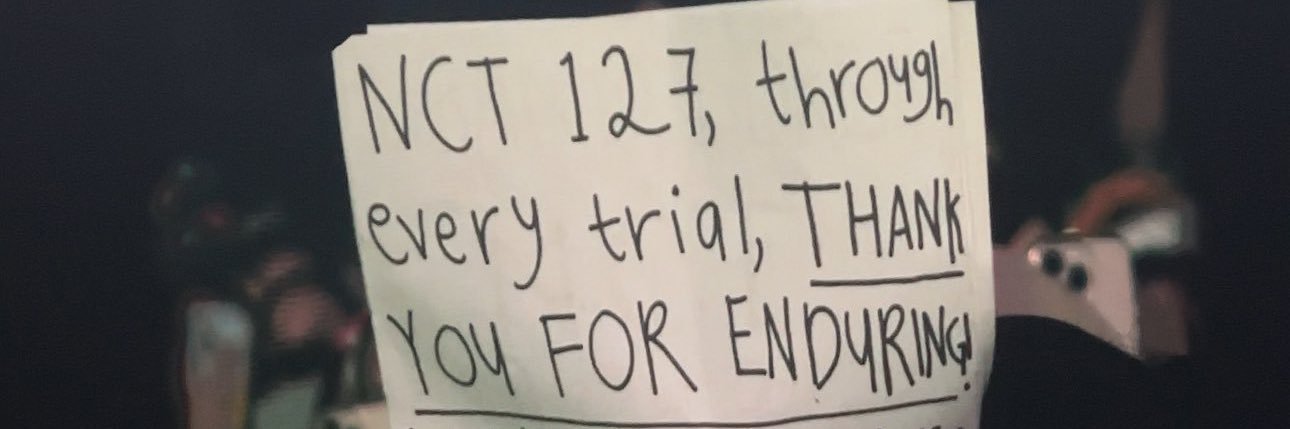 NCT 127, through
every trial, THANK
YOU FOR ENDURING!